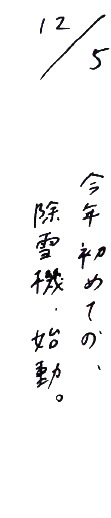 12/5
今年初めての、
除雪機・始動。